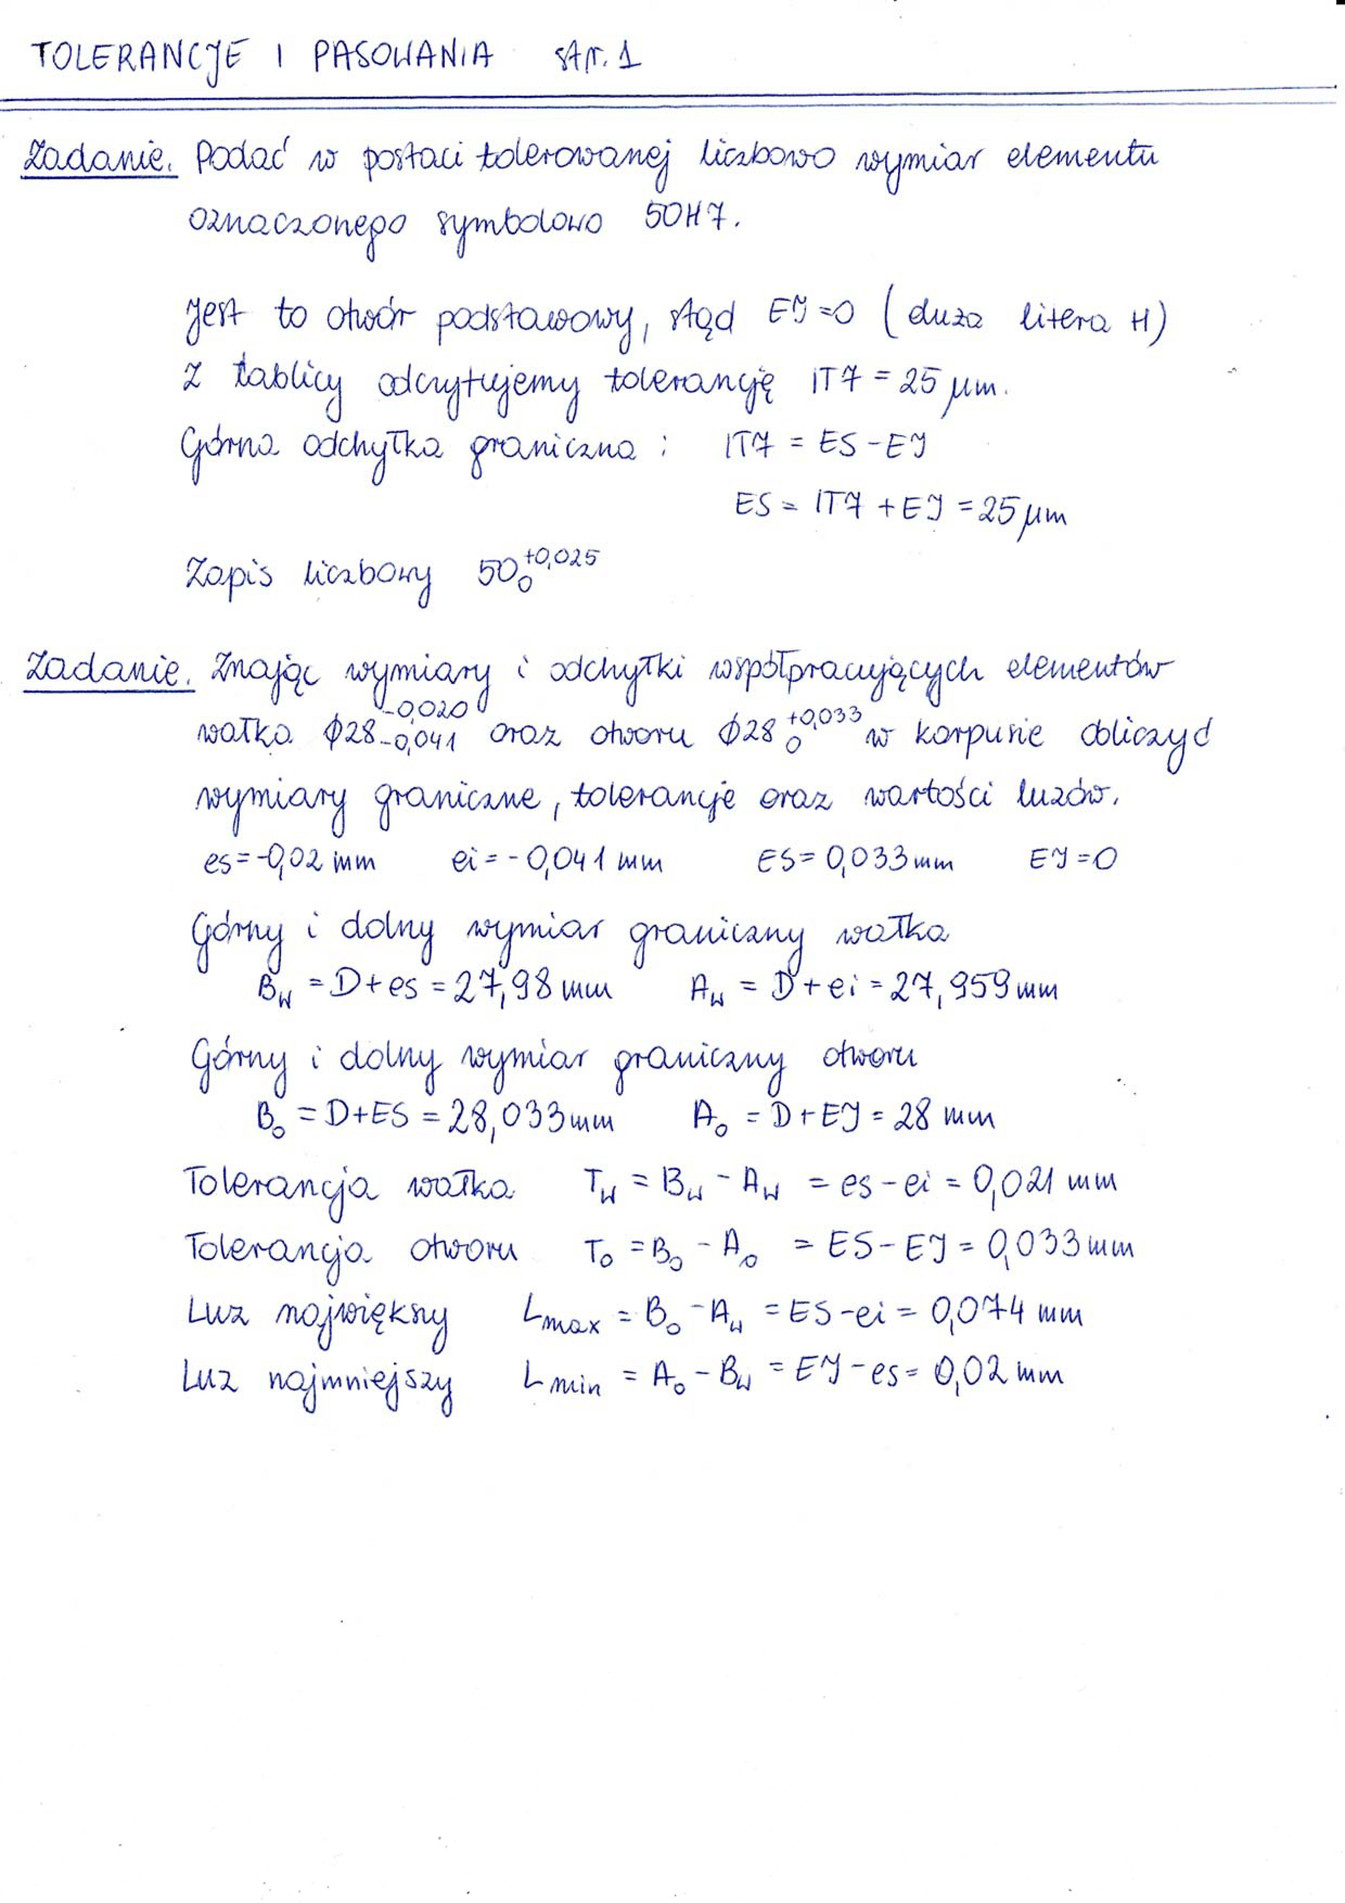 TOLERANCJE I PASOWANIA str. 1
Zadanie. Podać w postaci tolerowanej liczbowo wymiar elementu
oznaczonego symbolowo 50H7.
Jest to otwór podstawowy, stąd EJ=0 (duża litera H)
Z tablicy odczytujemy tolerancję IT7 = 25 μm.
Górna odchyłka graniczna: IT7 = ES - EJ
ES = IT7 + EJ = 25 μm
Zapis liczbowy 50 +0,025 0
Zadanie. Znając wymiary i odchyłki współpracujących elementów
wałka ϕ28 -0,020 -0,041 oraz otworu ϕ28 +0,033 0 w korpusie obliczyć
wymiary graniczne, tolerancje oraz wartości luzów.
es=-0,02 mm ei = -0,041 mm ES= 0,033 mm EJ=0
Górny i dolny wymiar graniczny wałka
B_W = D+es = 27,98 mm A_W = D+ei = 27,959 mm
Górny i dolny wymiar graniczny otworu
B_O = D+ES = 28,033 mm A_O = D+EJ = 28 mm
Tolerancja wałka T_W = B_W - A_W = es-ei = 0,021 mm
Tolerancja otworu T_O = B_O - A_O = ES-EJ = 0,033 mm
Luz największy L_max = B_O - A_W = ES-ei = 0,074 mm
Luz najmniejszy L_min = A_O - B_W = EJ-es = 0,02 mm